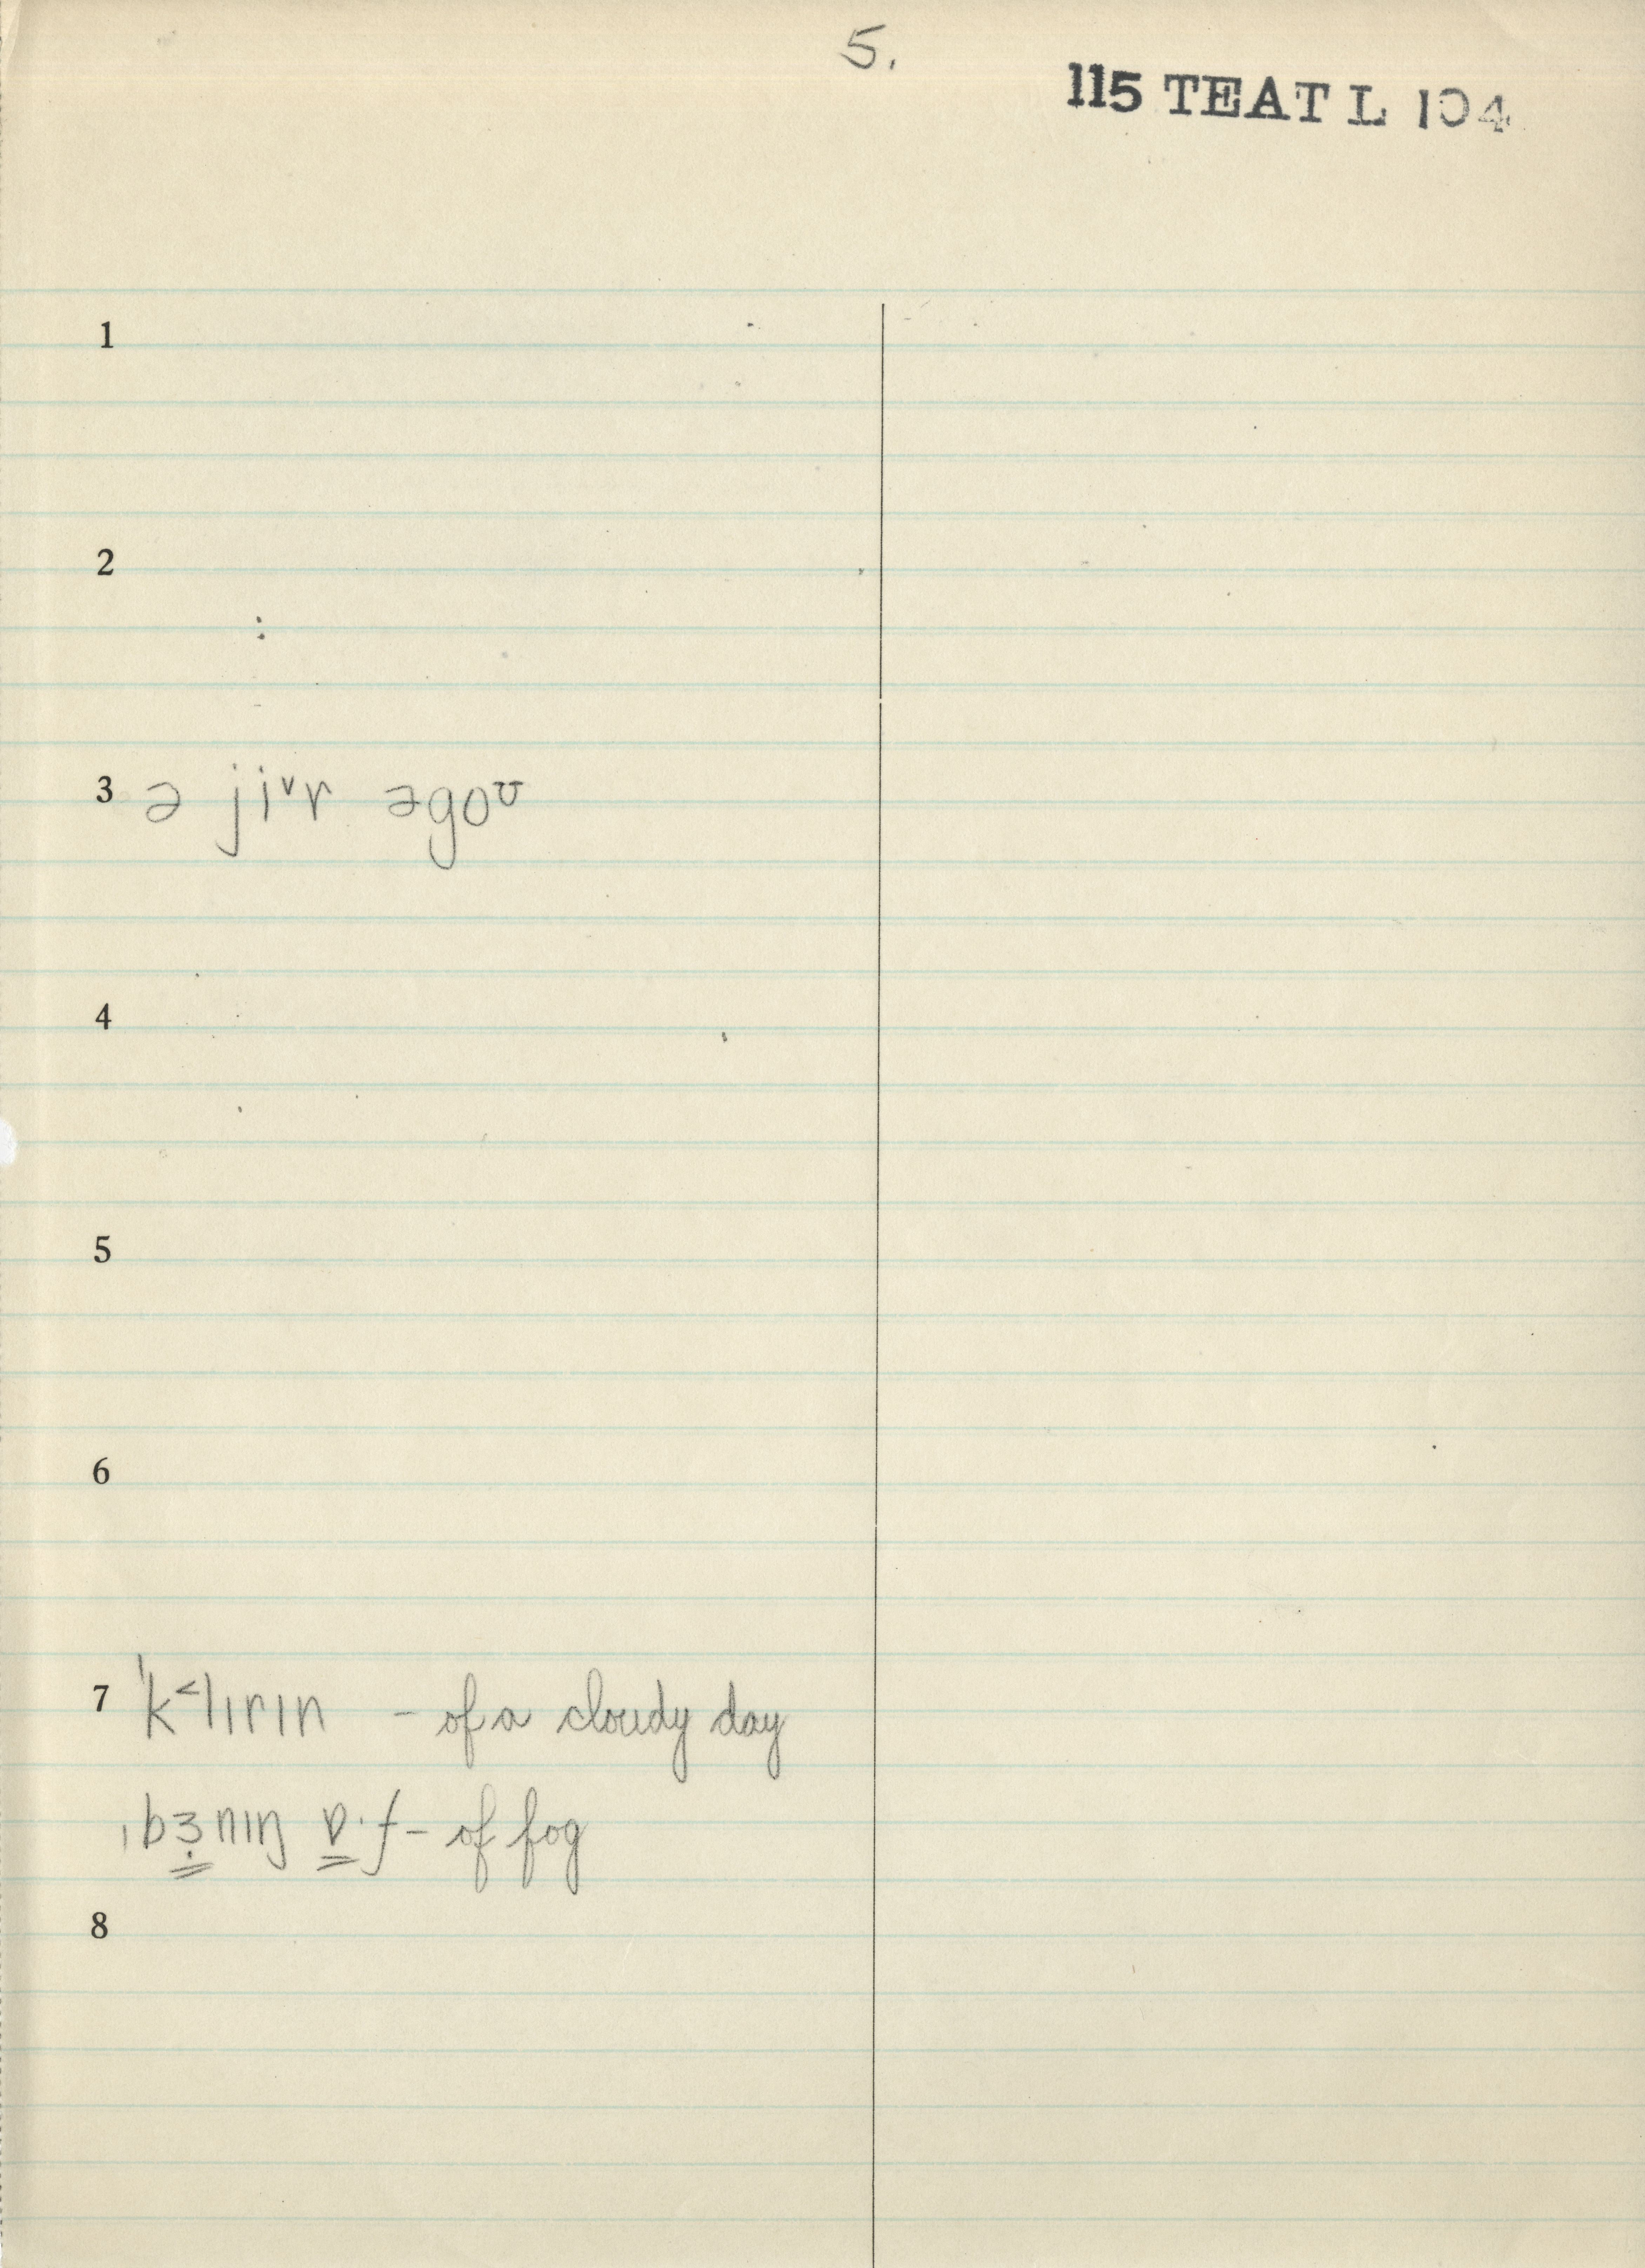 5.
115 TEAT L 104
1
2
3 ə jiᵛr əgoᶷ
4
5
6
7 ˈk˂lɪrɪn – of a cloudy day
ˌbɜ̣nɪŋ ɒ·f – of fog
8